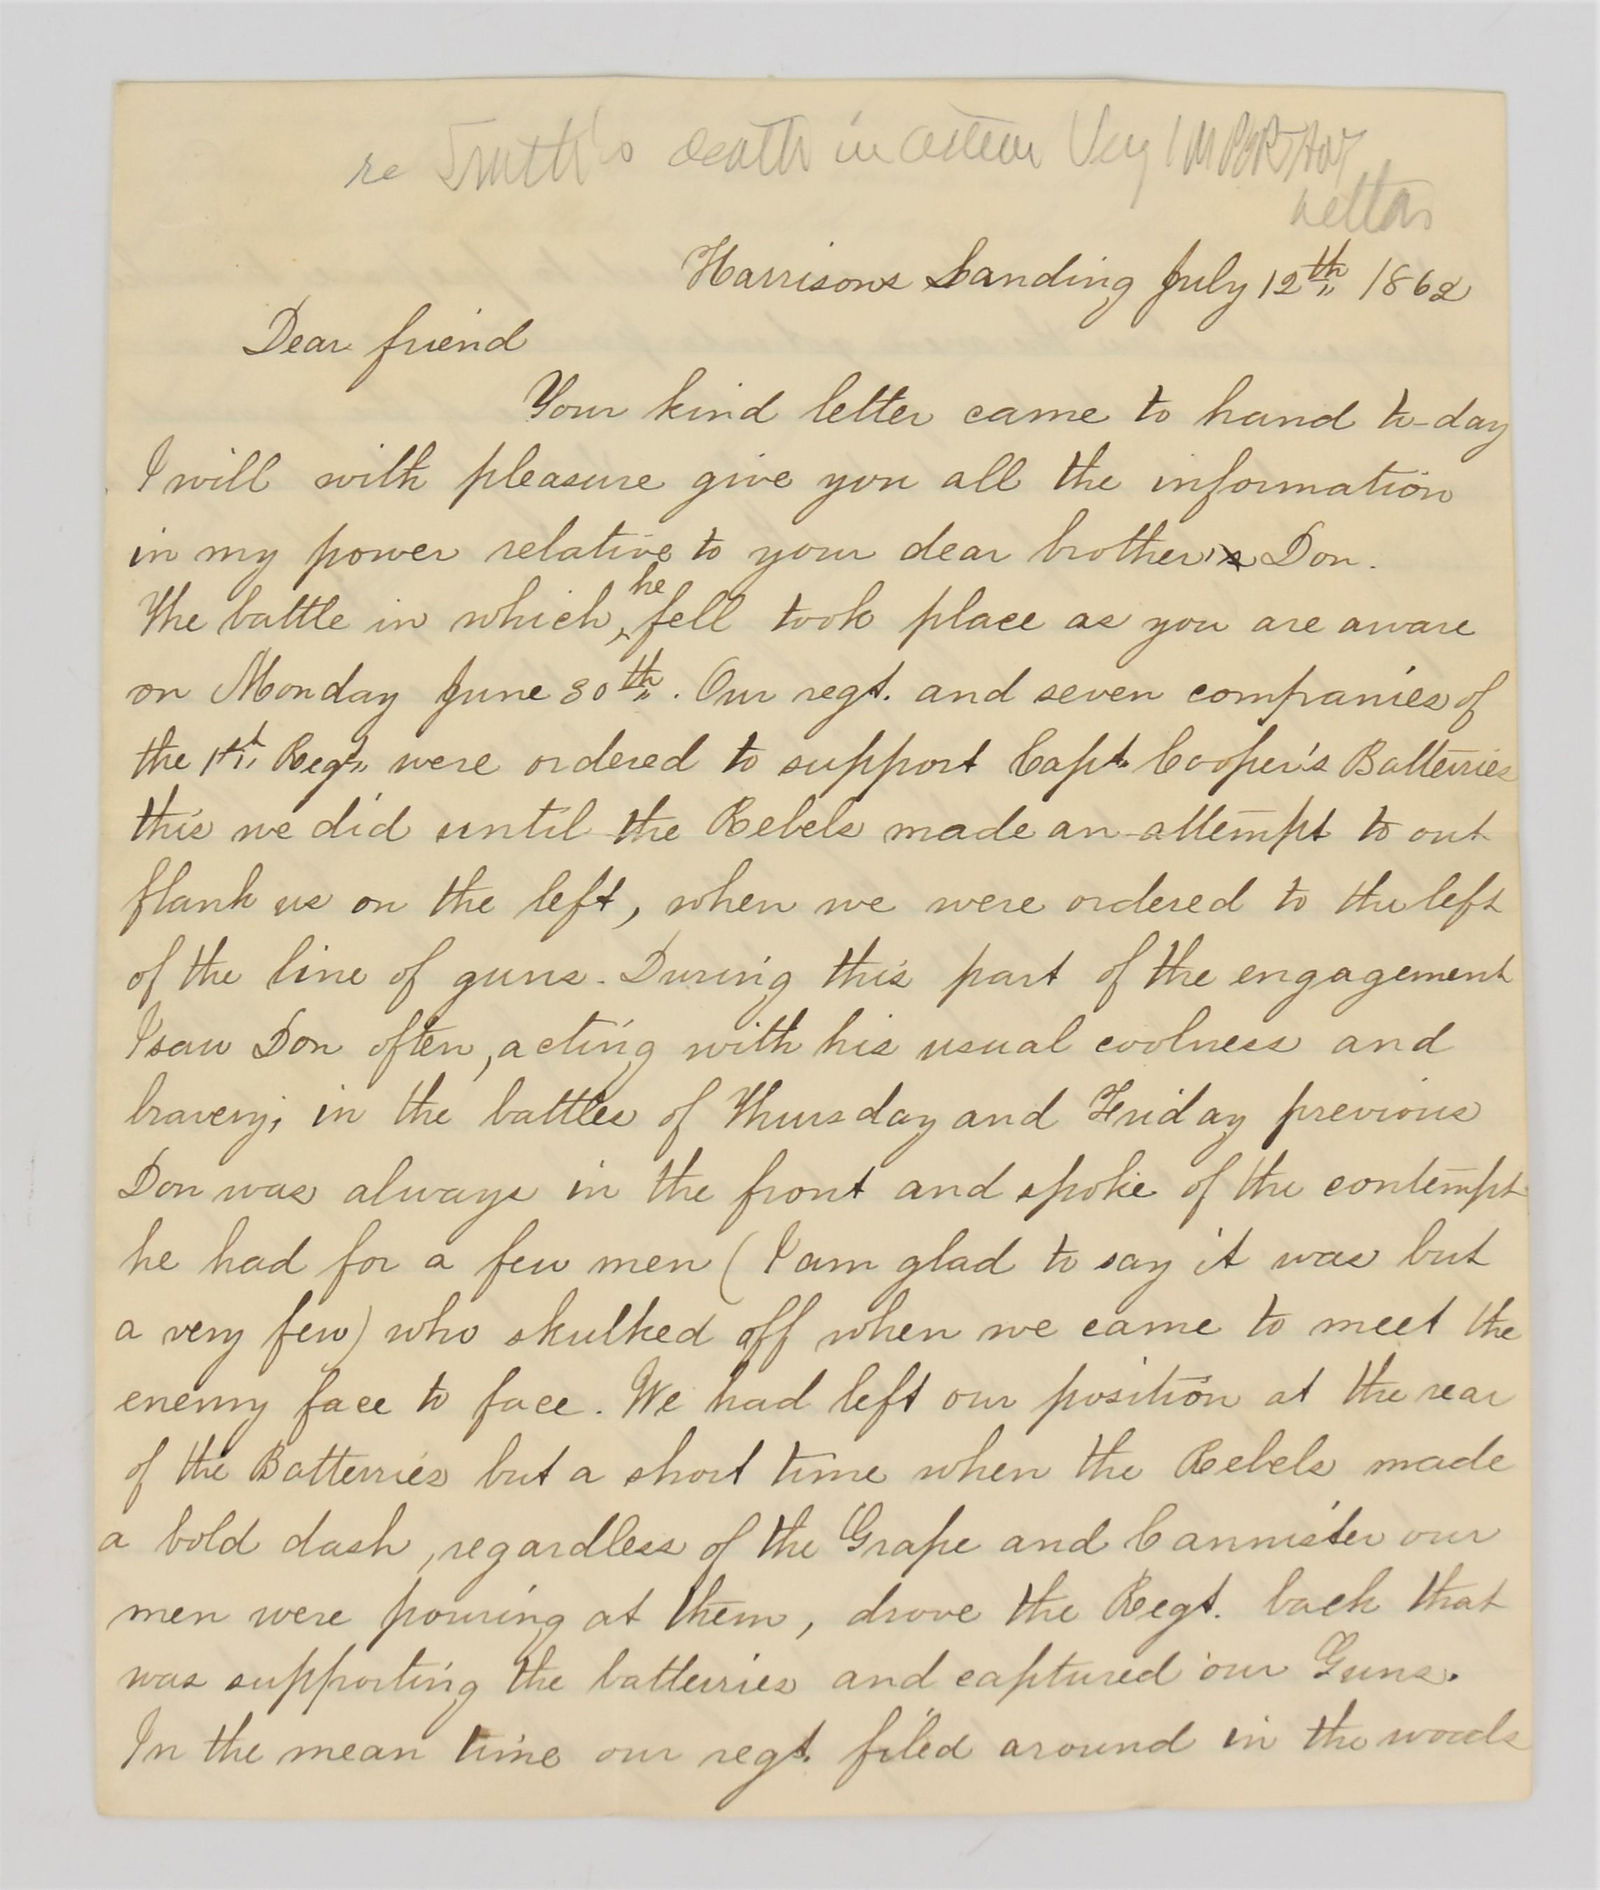 re Smith's death in action Very IMPORTANT
letter
Harrisons Landing July 12th 1862
Dear friend
Your kind letter came to hand to-day
I will with pleasure give you all the information
in my power relative to your dear brother Don.
The battle in which he fell took place as you are aware
on Monday June 30th. Our regt. and seven companies of
the 1st Regt were ordered to support Capt. Cooper's Batterries
this we did until the Rebels made an attempt to out
flank us on the left, when we were ordered to the left
of the line of guns. During this part of the engagement
I saw Don often, acting with his usual coolness and
bravery; in the battles of Thursday and Friday previous
Don was always in the front and spoke of the contempt
he had for a few men (I am glad to say it was but
a very few) who skulked off when we came to meet the
enemy face to face. We had left our position at the rear
of the Batterries but a short time when the Rebels made
a bold dash, regardless of the Grape and Cannister our
men were pouring at them, drove the Regt. back that
was supporting the batterries and captured our Guns.
In the mean time our regt. filed around in the woods